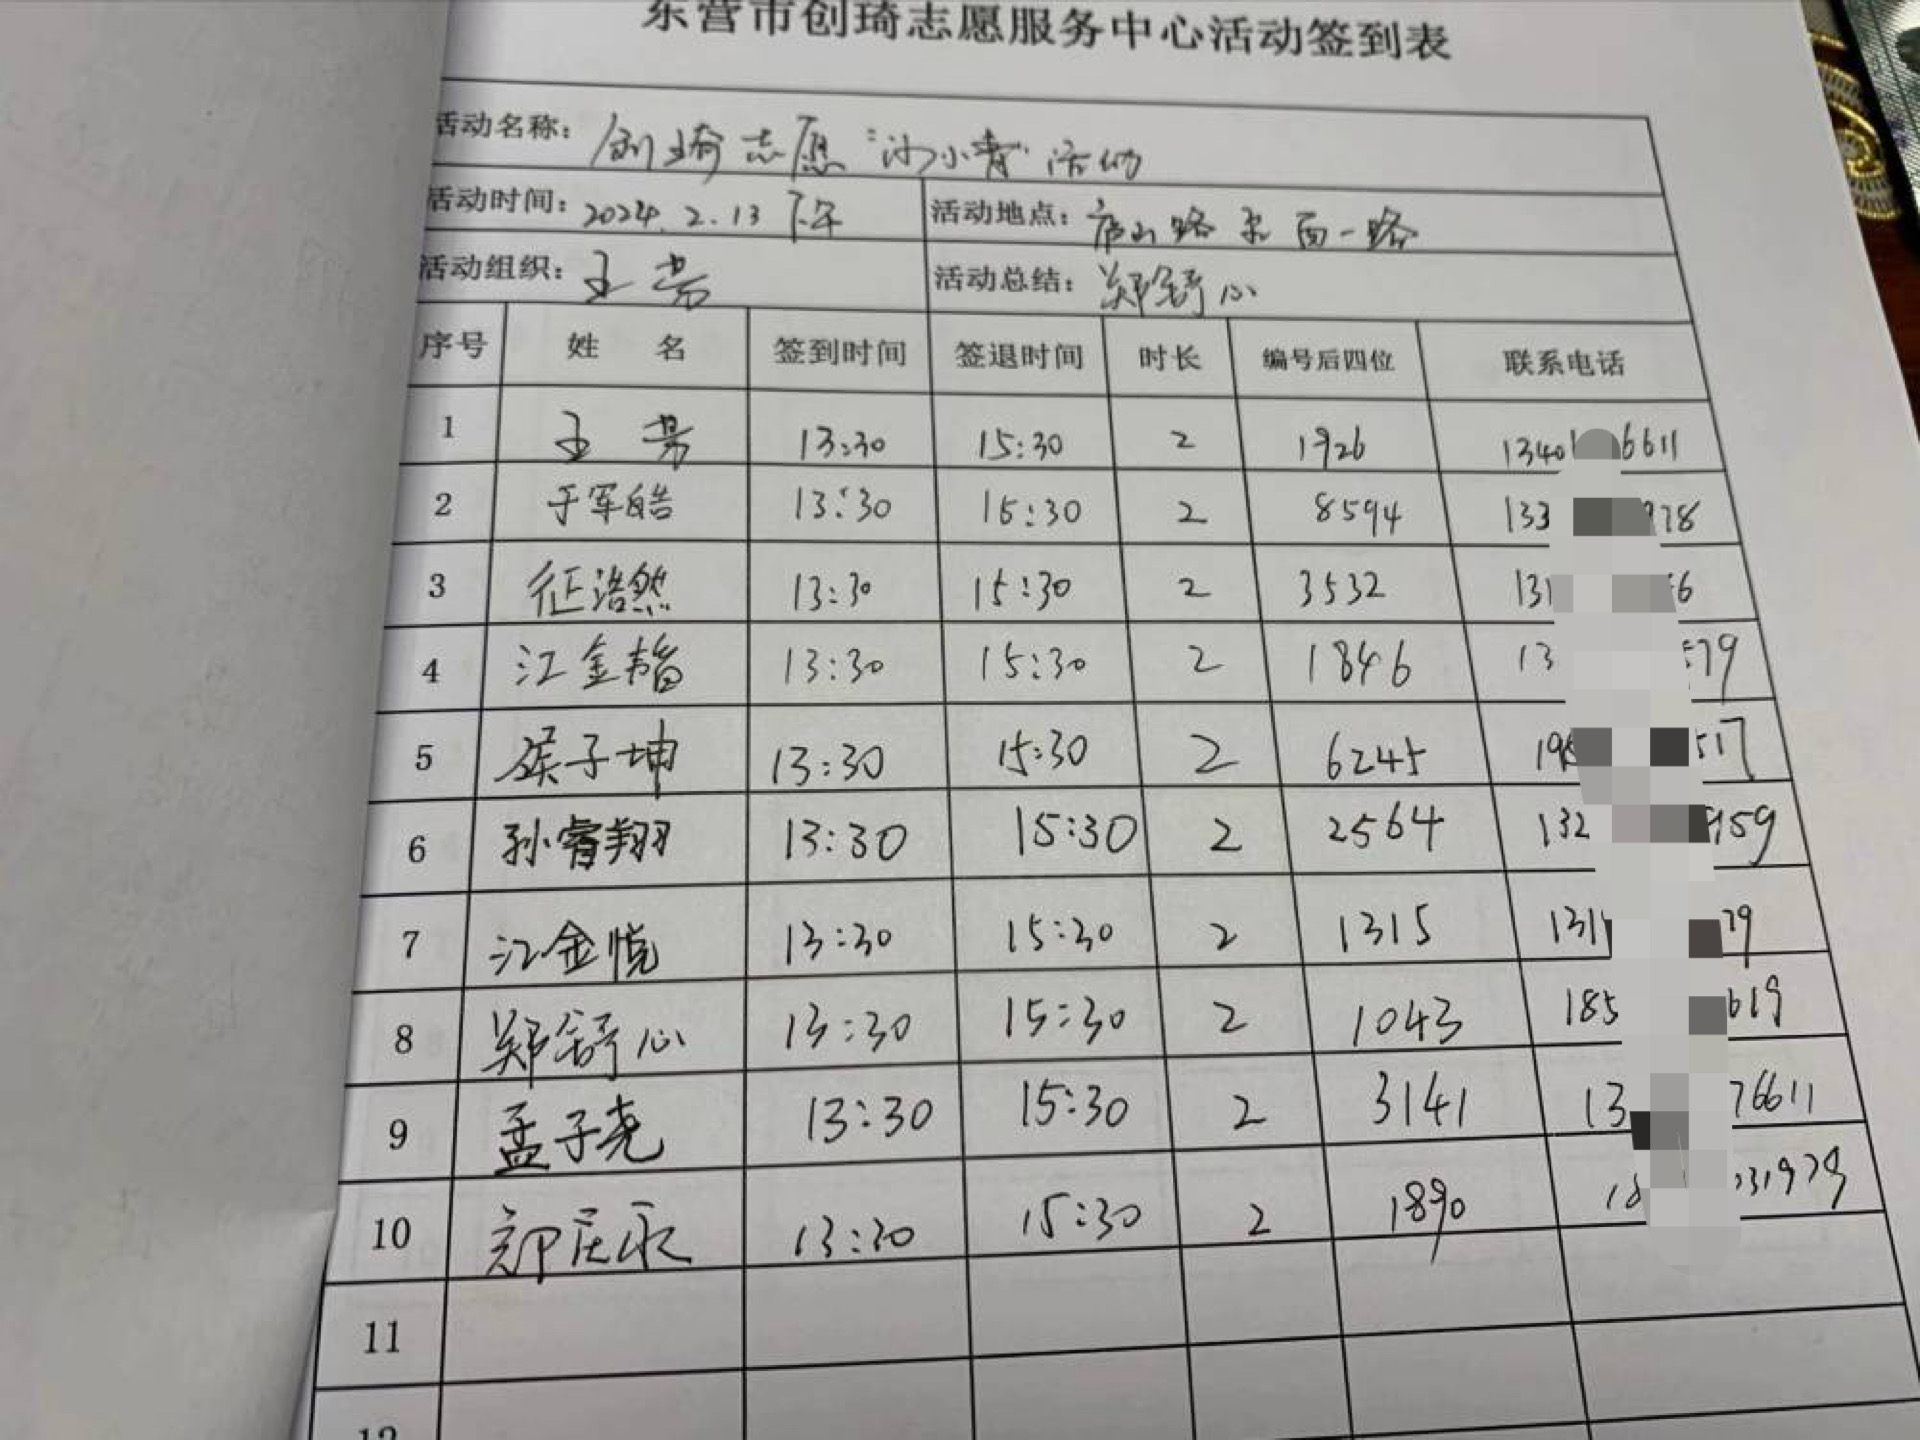 东营市创琦志愿服务中心活动签到表
活动名称: 创琦志愿“沙小青”活动
活动时间: 2024.2.13 下午 活动地点: 庐山路 西一路
活动组织: 王芳 活动总结: 郑舒心
序号 姓名 签到时间 签退时间 时长 编号后四位 联系电话
1 王芳 13:30 15:30 2 1926 1340 6611
2 于军皓 13:30 15:30 2 8594 133 978
3 征浩然 13:30 15:30 2 3532 131 6
4 江金韬 13:30 15:30 2 1846 13 579
5 侯子坤 13:30 15:30 2 6245 195 517
6 孙睿翔 13:30 15:30 2 2564 132 159
7 江金悦 13:30 15:30 2 1315 131 79
8 郑舒心 13:30 15:30 2 1043 185 619
9 孟子尧 13:30 15:30 2 3141 13 76611
10 13:30 15:30 2 1890 18 31979
11
12